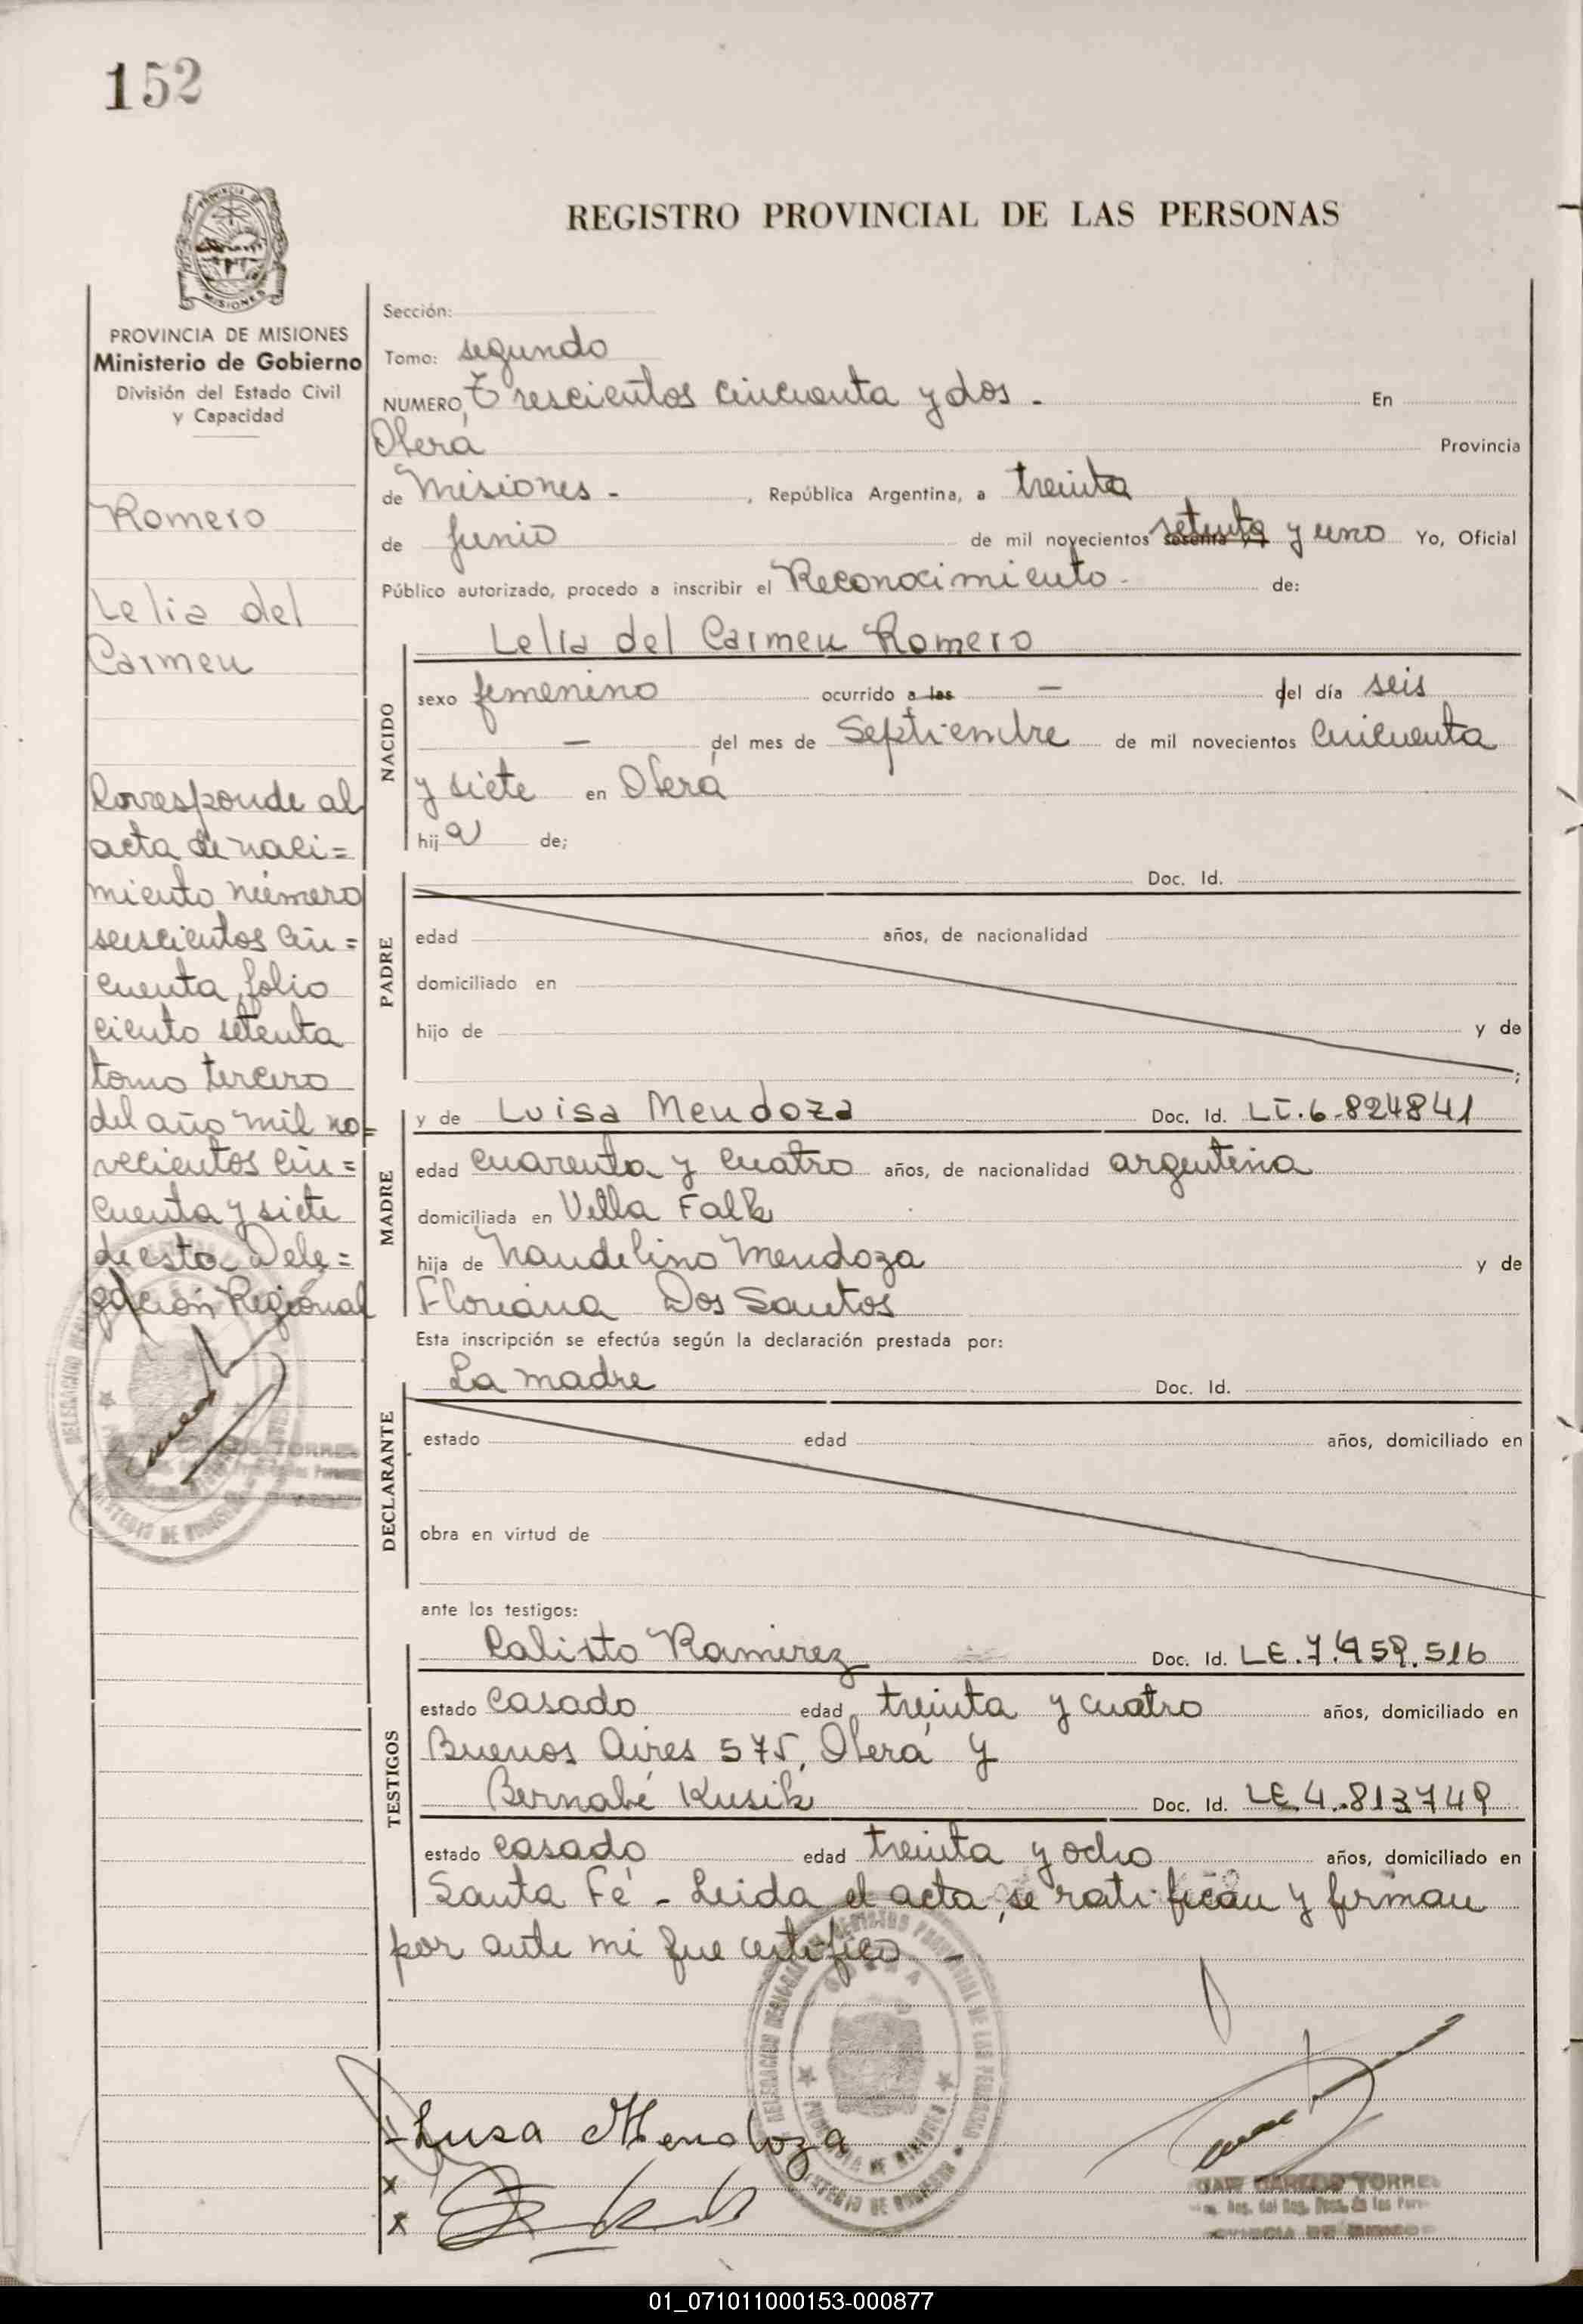 152
REGISTRO PROVINCIAL DE LAS PERSONAS
MISIONES
PROVINCIA DE MISIONES
Ministerio de Gobierno
División del Estado Civil
y Capacidad
Romero
Lelia del
Carmen
Corresponde al
acta de naci=
miento número
seiscientos cin=
cuenta, folio
ciento setenta
tomo tercero
del año mil no=
vecientos cin=
cuenta y siete
de esta Dele=
gación Regional
Sección:
Tomo: segundo
NUMERO, Trescientos cincuenta y dos - En
Oberá Provincia
de Misiones - , República Argentina, a treinta
de Junio de mil novecientos setenta y uno Yo, Oficial
Público autorizado, procedo a inscribir el Reconocimiento - de:
NACIDO
Lelia del Carmen Romero
sexo femenino ocurrido a las — del día seis
— del mes de Septiembre de mil novecientos cincuenta
y siete en Oberá
hija de;
PADRE
Doc. Id.
edad años, de nacionalidad
domiciliado en
hijo de y de
;
MADRE
y de Luisa Mendoza Doc. Id. LC.6.824841
edad cuarenta y cuatro años, de nacionalidad argentina
domiciliada en Villa Falk
hija de Naudelino Mendoza y de
Floriana Dos Santos
Esta inscripción se efectúa según la declaración prestada por:
DECLARANTE
La madre Doc. Id.
estado edad años, domiciliado en
obra en virtud de
ante los testigos:
TESTIGOS
Calixto Ramirez Doc. Id. LE.7.459.516
estado casado edad treinta y cuatro años, domiciliado en
Buenos Aires 575, Oberá y
Bernabé Kusik Doc. Id. LE.4.813749
estado casado edad treinta y ocho años, domiciliado en
Santa Fé - Leida el acta, se ratifican y firman
por ante mi que certifico -
Luisa Mendoza
x
x
JUAN CARLOS TORRES
01_071011000153-000877